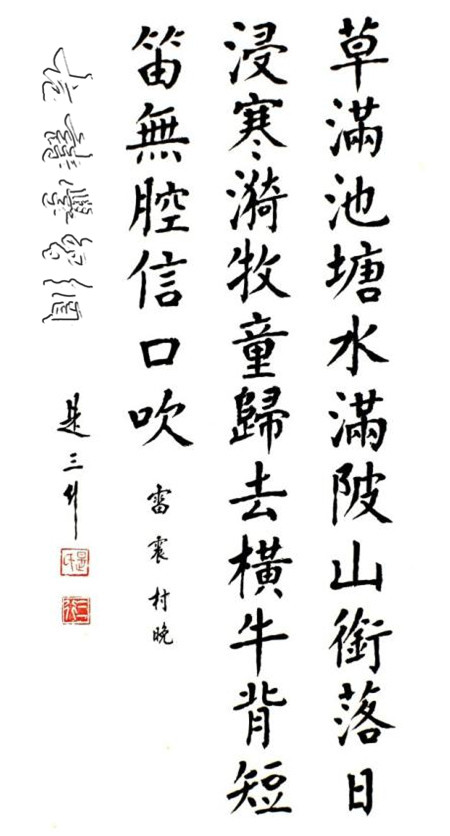 草滿池塘水滿陂山銜落日
浸寒漪牧童歸去橫牛背短
笛無腔信口吹
雷震村晚
是三